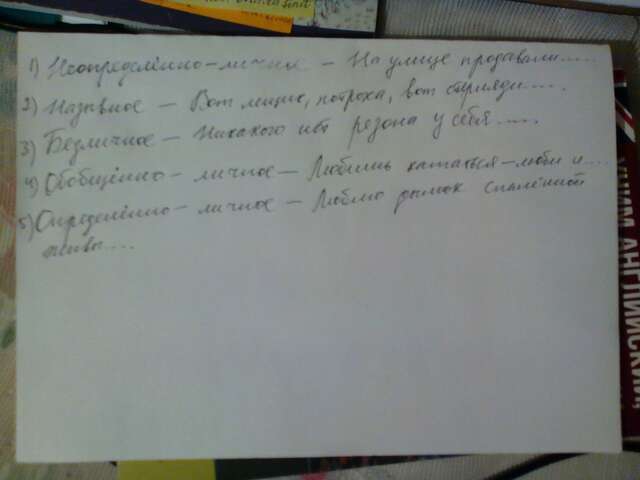 1) Неопределённо-личное - На улице продавали.....
2) Назывное - Вот лицо, потроха, вот
3) Безличное - Никакого резона у себя.....
4) Обобщённо-личное - Любишь кататься - люби и....
5) Определённо-личное - Люблю дымок спалённой
жнивы....
УЧИМ АНГЛИЙСКИЙ